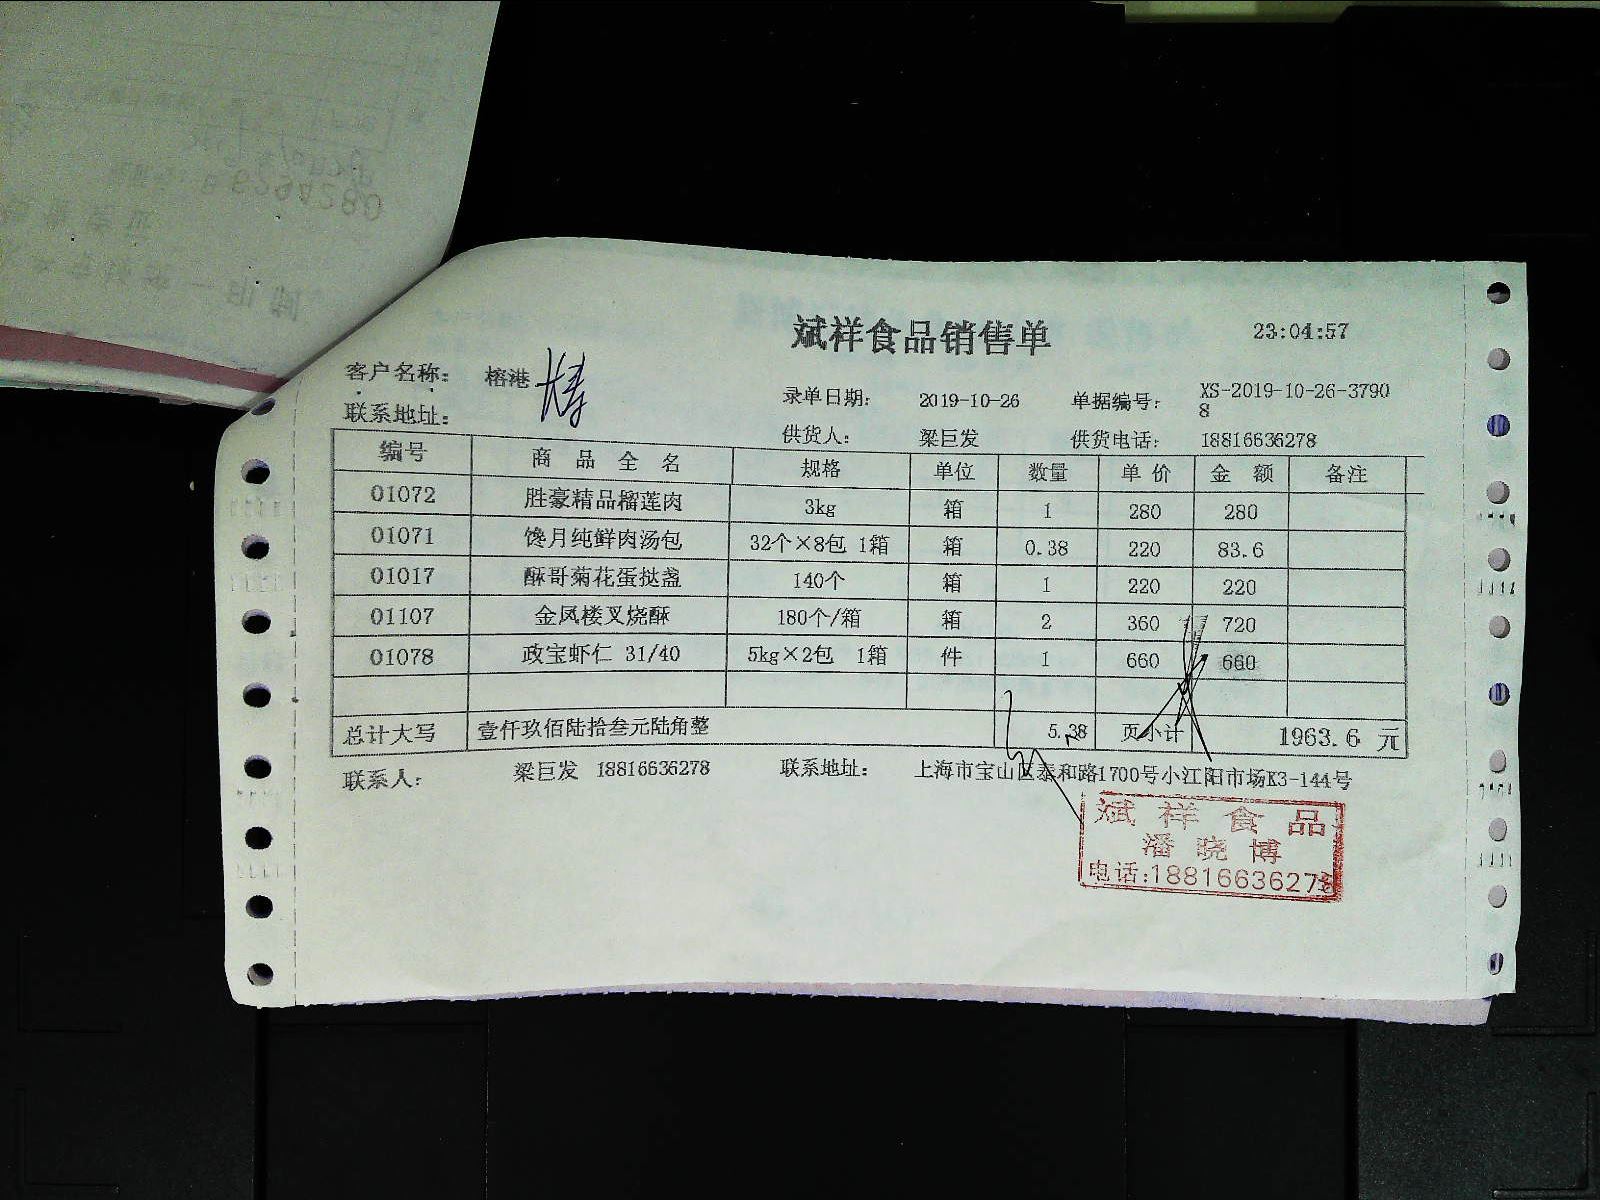 斌祥食品销售单
23:04:57
客户名称: 榕港
录单日期: 2019-10-26 单据编号: XS-2019-10-26-37908
联系地址:
供货人: 梁巨发 供货电话: 18816636278
编号 商 品 全 名 规格 单位 数量 单 价 金 额 备注
01072 胜豪精品榴莲肉 3kg 箱 1 280 280
01071 馋月纯鲜肉汤包 32个×8包 1箱 箱 0.38 220 83.6
01017 酥哥菊花蛋挞盏 140个 箱 1 220 220
01107 金凤楼叉烧酥 180个/箱 箱 2 360 720
01078 政宝虾仁 31/40 5kg×2包 1箱 件 1 660 660
总计大写 壹仟玖佰陆拾叁元陆角整 5.38 页小计 1963.6 元
联系人: 梁巨发 18816636278 联系地址: 上海市宝山区泰和路1700号小江阳市场K3-144号
斌祥食品
潘晓博
电话:18816636278